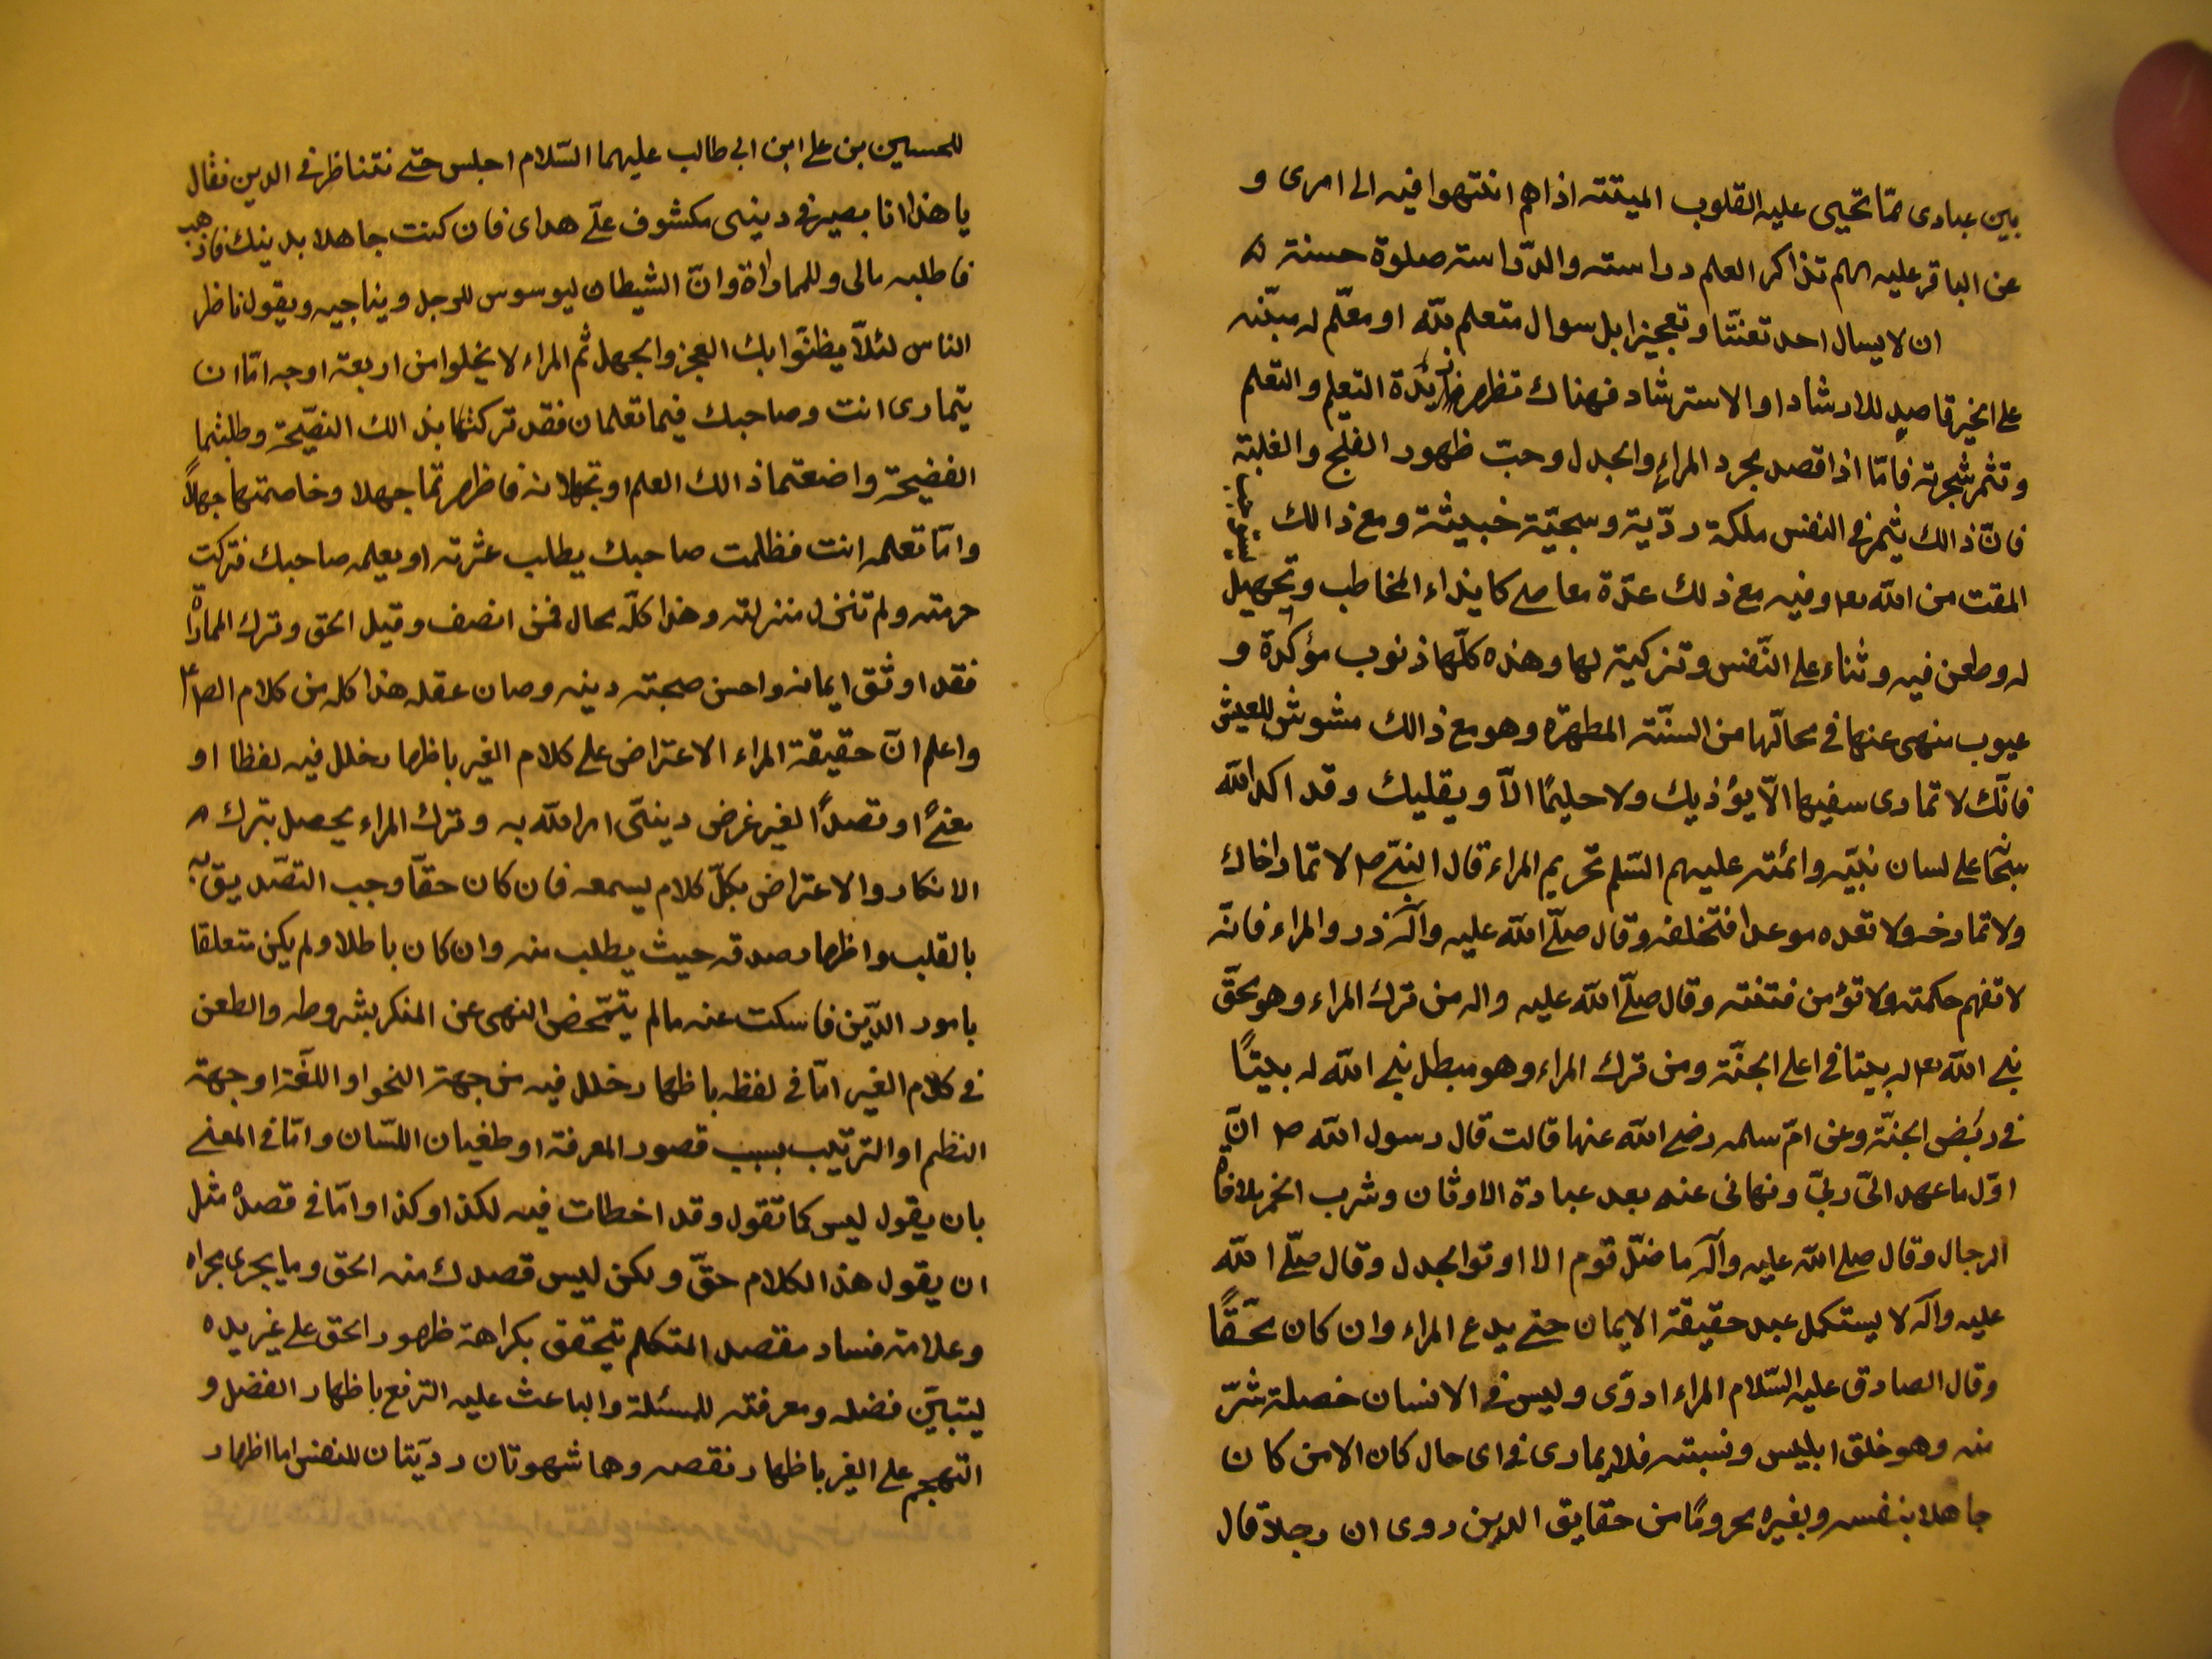 بين عبادى ممّا تحيى عليه القلوب الميتته اذا هم انتهوا فيه الى امرى و
عن الباقر عليه السلم تذاكر العلم دراسته والدّراسته صلوة حسنته
ان لا يسال احد تعنّتا وتعجيزا بل سوال متعلم لله او معلّم له مبيّنه
على الخير قاصدٍ للارشاد او الاسترشاد فهناك تظهر ثمرته زايدة التعليم والتعلم
وتثمر شجرته فامّا اذا قصد مجرد المراء والجدل وحبّ ظهور الفلج والغلبته
فانّ ذالك يثمر في النفس ملكة ردّية وسجيّة خبيثة ومع ذالك يستوجب
المقت من الله تع وفيه مع ذلك عدّة معاصى كايذاء المخاطب وتجهيل
له وطعن فيه وثناء على النّفس وتزكية لها وهذه كلّها ذنوب مؤكدة و
عيوب منهى عنها في محالّها من السنّته المطهّره وهو مع ذالك مشوش للعيش
فانّك لا تمارى سفيها الّا يؤذيك ولا حليمًا الّا ويقليك وقد اكد الله
سبحا على لسان نبيّه وائمّته عليهم السّلم تحريم المراء قال النبىّ ص لا تمار اخاك
ولا تمازحه ولا تعده موعدا فتخلفه وقال صلّى الله عليه وآله ذروا المراء فانّه
لا تفهم حكمته ولا تؤمن فتنته وقال صلّى الله عليه واله من ترك المراء وهو محقّ
بنى الله تع له بيتا في اعلى الجنّة ومن ترك المراء وهو مبطل بنى الله له بيتًا
في ربض الجنّة وعن امّ سلمه رضى الله عنها قالت قال رسول الله ص انّ
اوّل ما عهد الىّ ربّى ونهانى عنه بعد عبادة الاوثان وشرب الخمر ملاحاة
الرجال وقال صلى الله عليه وآله ما ضلّ قوم الا اوتوا الجدل وقال صلّى الله
عليه وآله لا يستكمل عبد حقيقة الايمان حتى يدع المراء وان كان محقّا
وقال الصادق عليه السّلام المراء ادوّى وليس في الانسان خصلة شرّ
منه وهو خلق ابليس ونسبته فلا يمارى في اى حال كان الا من كان
جاهلا بنفسه وبغيره محرومًا من حقايق الدين روى ان رجلا قال
للحسين بن على ابن ابى طالب عليهما السّلام اجلس حتى نتناظر في الدين فقال
يا هذا انا بصير في دينى مكشوف علّى هداى فان كنت جاهلا بدينك فاذهب
فاطلبه مالى وللماراة وانّ الشيطان ليوسوس للرجل ويناجيه ويقول ناظر
الناس لئلّا يظنّوا بك العجز والجهل ثم المراء لا يخلوا من اربعة اوجه امّا ان
يتمارى انت وصاحبك فيما تعلمان فقد تركتما بذالك النصّيحة وطلبتما
الفضيحة واضعتما ذالك العلم او تجهلانه فاظهرتما جهلا وخاصمتما جهلاً
وامّا تعلمه انت فظلمت صاحبك بطلب عثرته او يعلمه صاحبك فتركت
حرمته ولم تنزل منزلته وهذا كلّه محال فمن انصف وقبل الحق وترك المماراة
فقد اوثق ايمانه واحسن صحبته دينه وصان عقله هذا كله من كلام الص ع
واعلم انّ حقيقة المراء الاعتراض على كلام الغير باظهار خلل فيه لفظا او
معنىً او قصدًا لغير غرض دينّى امر الله به وترك المراء يحصل بترك
الانكار والاعتراض بكلّ كلام يسمعه فان كان حقّا وجب التصّديق به
بالقلب واظهار صدقه حيث يطلب منه وان كان باطلا ولم يكن متعلقا
بامور الدّين فاسكت عنه مالم يتمّحض النهى عن المنكر بشروطه والطعن
في كلام الغير امّا في لفظه باظهار خلل فيه من جهة النحو او اللّغة او جهة
النظم او الترتيب بسبب قصور المعرفة او طغيان اللسّان وامّا في المعنى
بان يقول ليس كما تقول وقد اخطات فيه لكذا وكذا وامّا في قصده مثل
ان يقول هذا الكلام حقّ ولكن ليس قصدك منه الحق وما يجرى مجراه
وعلامة فساد مقصد المتكلم يتحقق بكراهة ظهور الحق على غير يده
ليتبيّن فضله ومعرفته للمسئلة والباعث عليه الترفع باظهار الفضل و
التهجم على الغير باظهار نقصه وهما شهوتان رديّتان للنفس اما اظهار